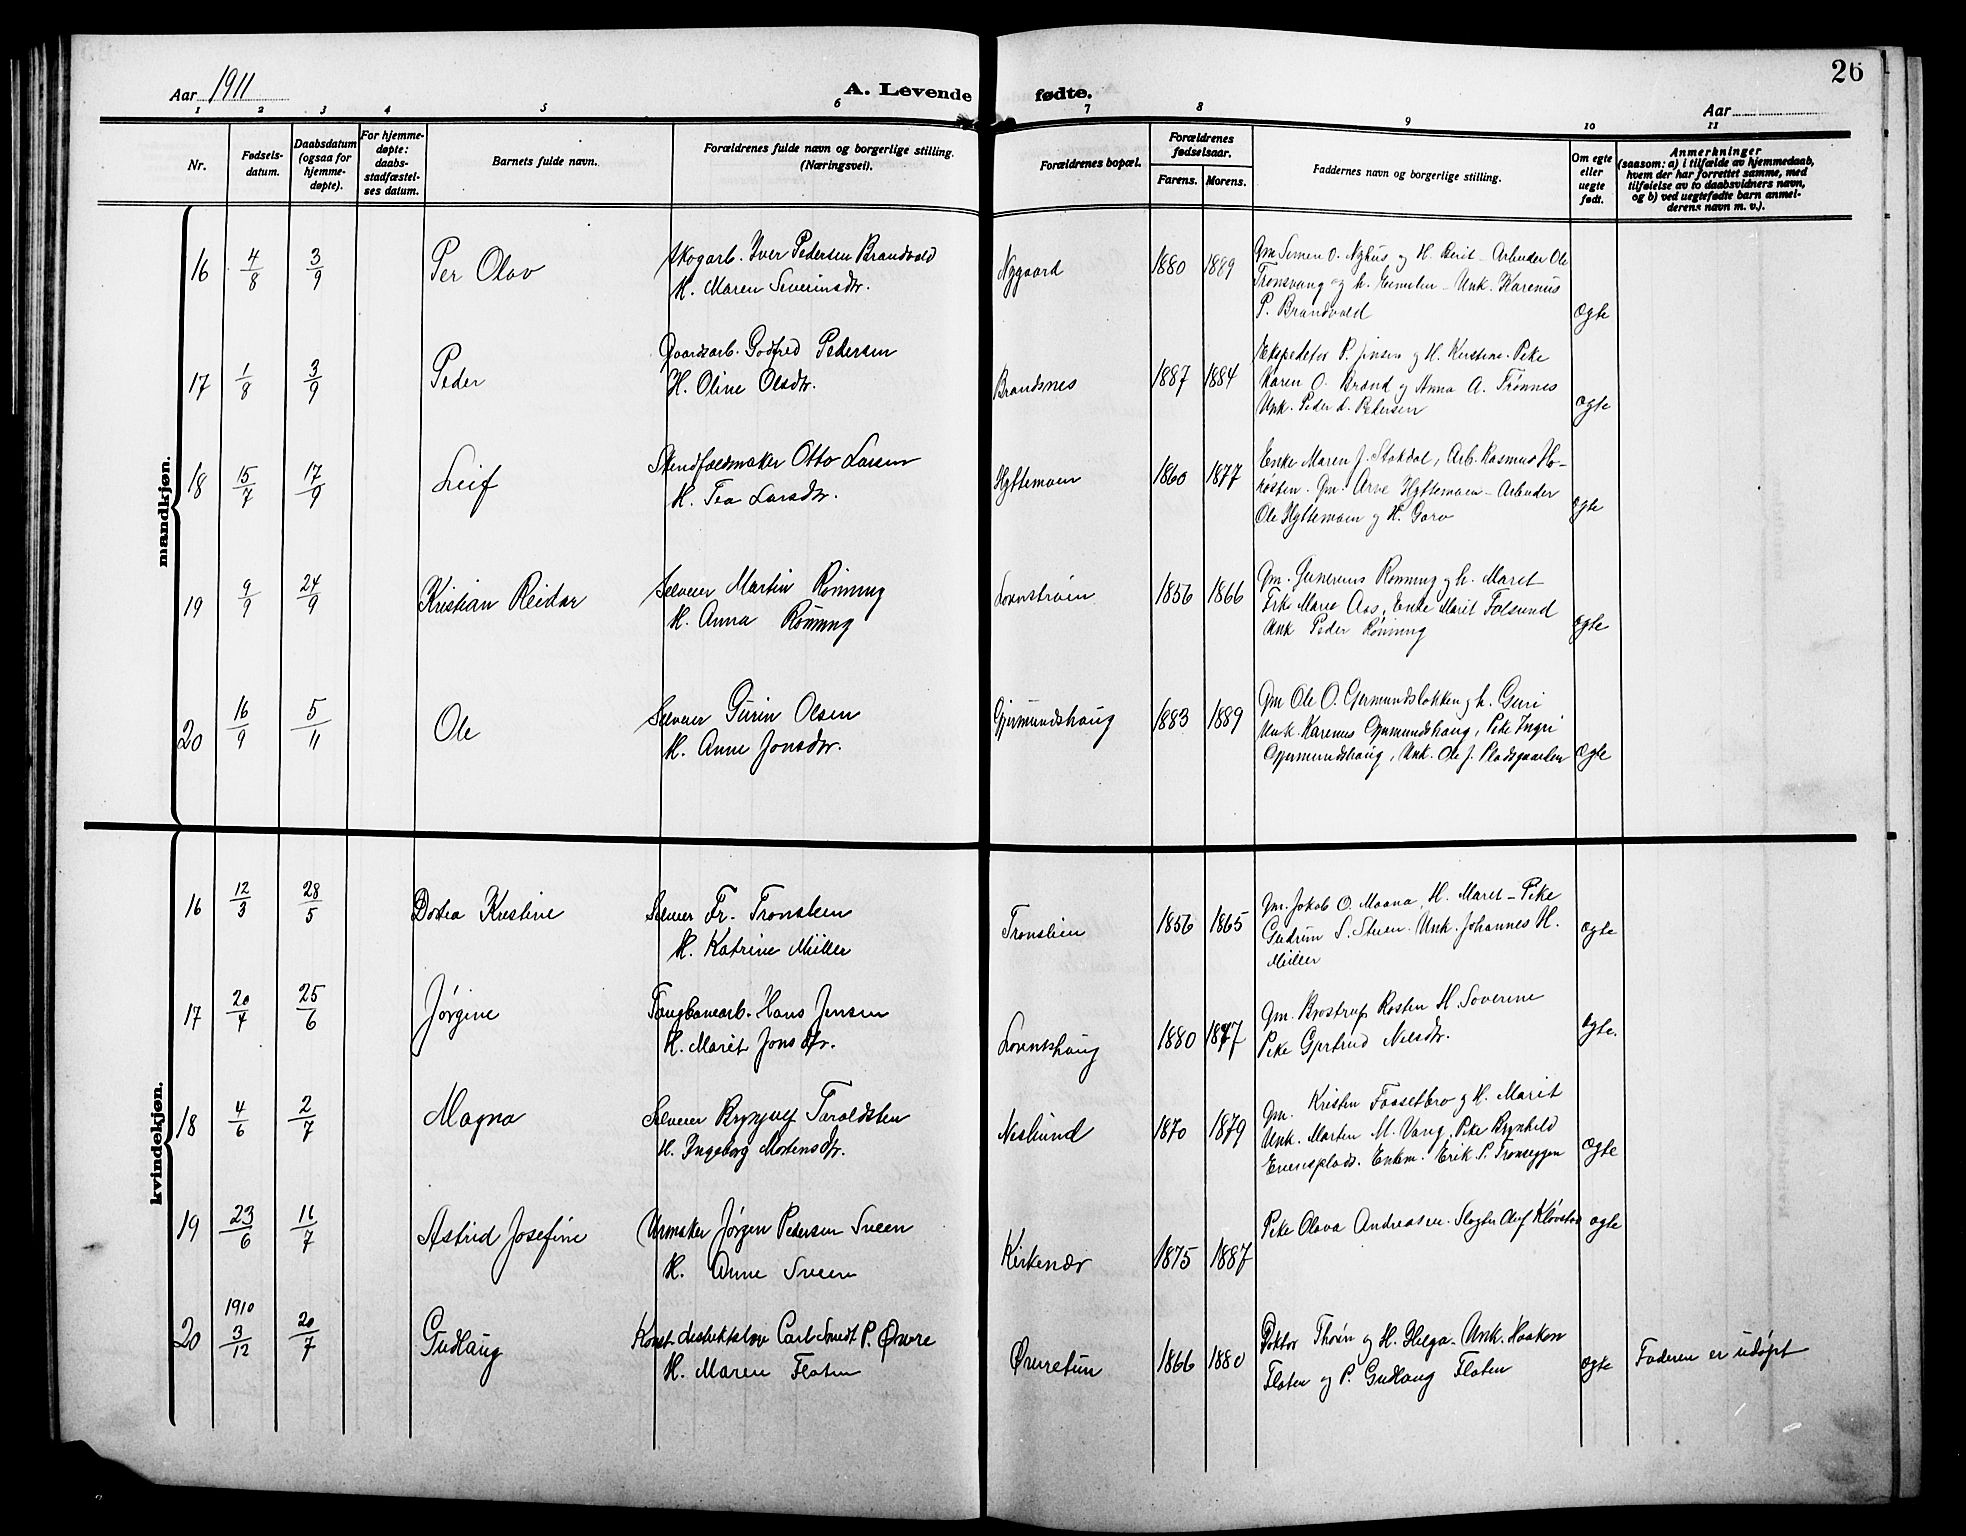 26
Aar 1911
A. Levende fødte.
Aar
1 2 3 4 5 6 7 8 9 10 11
Nr.
Fødsels-datum.
Daabsdatum (ogsaa for hjemme-døpte).
For hjemme-døpte: daabs-stadfæstel-ses datum.
Barnets fulde navn.
Forældrenes fulde navn og borgerlige stilling. (Næringsvei).
Forældrenes bopæl.
Forældrenes fødselsaar.
Farens. Morens.
Faddernes navn og borgerlige stilling.
Om egte eller uegte født.
Anmerkninger
(saasom: a) i tilfælde av hjemmedaab,
hvem der har forrettet samme, med
tilføielse av to daabsvidners navn,
og b) ved uegtefødte barn anmel-
derens navn m. v.).
mandkjøn.
16 4/8 3/9 Per Olav
Skogarb. Iver Pedersen Brandvold
H. Maren Severinsdtr.
Nygaard 1880 1889
Gm Simen O. Nyhus og H. Berit - Arbeider Ole
Tronsvang og h. Emelie - Unk. Karenus
P. Brandvold
egte
17 1/8 3/9 Peder
Gaardsarb. Godfred Pedersen
H. Oline Olsdtr.
Brandsnes 1887 1884
Ekspeditør P. Jensen og H. Kirstine. Pike
Karen O. Brænd og Anna A. Trønnes
Unk. Peder L. Pedersen
egte
18 15/7 17/9 Leif
Skindfældmaker Otto Larsen
H. Tea Larsdtr.
Hyttemoen 1860 1877
Enke Maren J. Stokdal, Arb. Rasmus Ho-
kosten. Gm. Arne Hyttemoen - Arbeider
Ole Hyttemoen og H. Goro
egte
19 9/9 24/9 Kristian Reidar
Selveier Martin Rønning
H. Anna Rønning
Lovenstrøien 1856 1866
Gm. Gunerius Rønning og h. Maret
Frk Marie Aas, Enke Marit Folsund
Unk Peder Rønning
egte
20 16/9 5/11 Ole
Selveier Olsen
H. Anne Jonsdtr.
Gjermundshaug 1883 1889
Gm Ole O. Gjermundsløkken og h. Guri
Unk. Karenus Gjermundshaug, Pike Ingri
Gjermundshaug, Unk. Ole J. Pladsgaarden
egte
kvindekjøn.
16 12/3 28/5 Dortea Kristine
Selveier Fr. Tronslien
H. Katrine Müller
Tronslien 1856 1865
Gm. Jakob O. Moana, H. Maret - Pike
Gudrun S. Stuen. Unk. Johannes H.
Müller
egte
17 20/4 25/6 Jørgine
Taugbanearb. Hans Jensen
H. Marit Jonsdtr.
Lorentshaug 1880 1877
Gm. Brostrup Kosten H. Soverine
Pike Gjertrud Nilsdtr.
egte.
18 4/6 2/7 Magna
Selveier Brynjulf Taraldsten
H. Ingeborg Mortensdtr.
Neslund 1870 1879
Gm. Kristen Fossetbro og H. Marit
Unk. Morten M. Vang, Pike Brynhild
Evensplads. Enkem. Erik P. Tronseggen
egte
19 23/6 16/7 Astrid Josefine
Urmaker Jørgen Pedersen Sveen
H. Anne Sveen
Kirkenær 1875 1887
Pike Olava Andreasen. Slagter Oluf Kløvstad
egte
20 1910 3/12 20/7 Gudlaug
Konst. distriktslæge Carl Smidt P. Øvre
H. Maren Floten
Øvretun 1866 1880
Doktor Thorn og H. Helga. Unk. Haakon
Floten og P. Gudlaug Floten
egte
Faderen er udøpt